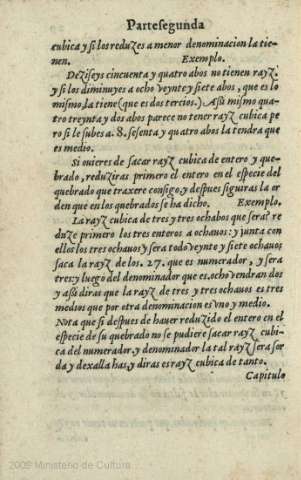 Parte segunda
cubica y si los reduzes a menor denominacion la tie-
nen. Exemplo.
Deziseys cincuenta y quatro abos no tienen rayz.
y si los diminuyes a ocho veynte y siete abos, que es lo
mismo, la tiene (que es dos tercios). Assi mismo qua-
tro treynta y dos abos parece no tener rayz cubica pe
ro si le subes a. 8. sesenta y quatro abos la tendra que
es medio.
Si quieres de sacar rayz cubica de entero y que-
brado, reduziras primero el entero en el especie del
quebrado que traxere consigo, y despues siguiras la or
den que en los quebrados se ha dicho. Exemplo.
La rayz cubica de tres y tres ochabos que sera? re
duze primero los tres enteros a ochauos: y junta con
ellos los tres ochauos y sera todo veynte y siete ochauos
saca la rayz de los. 27. que es numerador, y sera
tres: y luego del denominador que es. ocho vendran dos
y assi diras que la rayz de tres y tres ochauos es tres
medios que por otra denominacion es vno y medio.
Nota que si despues de hauer reduzido el entero en el
especie de su quebrado no se pudiere sacar rayz cubi-
ca del numerador, y denominador la tal rayz sera sor
da y dexalla has, y diras es rayz cubica de tanto.
Capitulo
2009 Ministerio de Cultura